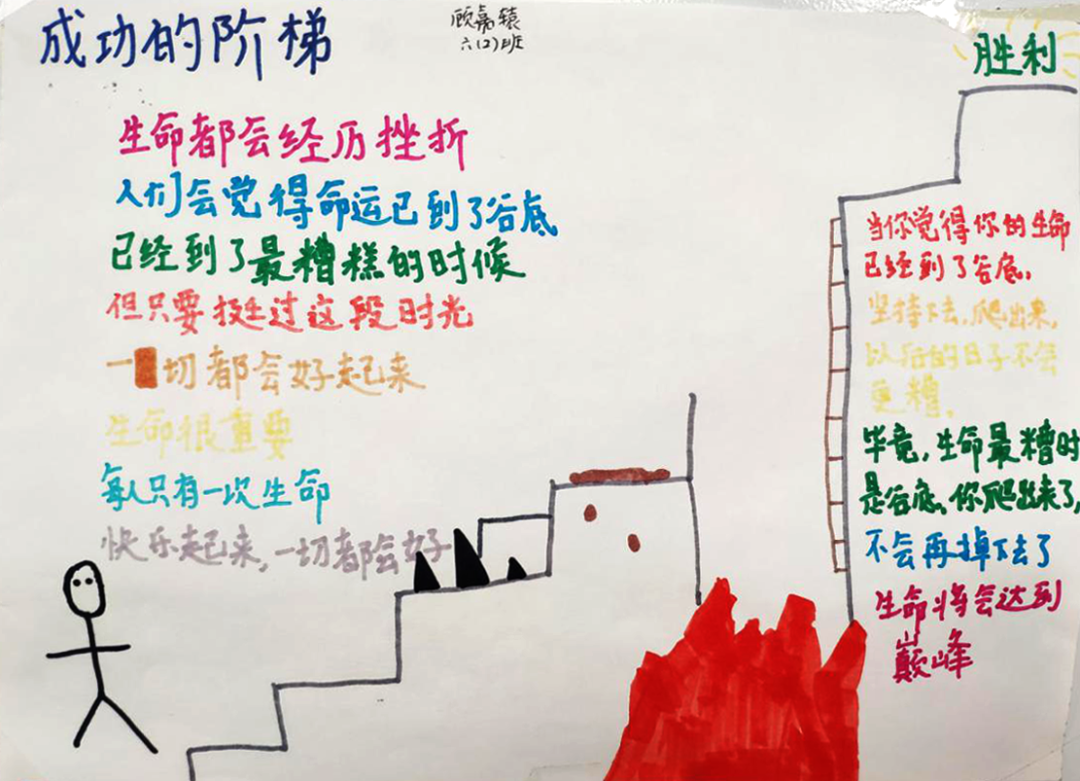 成功的阶梯
顾嘉辕
六(2)班
胜利
生命都会经历挫折
人们会觉得命运已到了谷底
已经到了最糟糕的时候
但只要挺过这段时光
一切都会好起来
生命很重要
每人只有一次生命
快乐起来,一切都会好
当你觉得你的生命
已经到了谷底,
坚持下去,爬出来,
以后的日子不会
更糟,
毕竟,生命最糟时
是谷底,你爬出来了,
不会再掉下去了
生命将会达到
巅峰